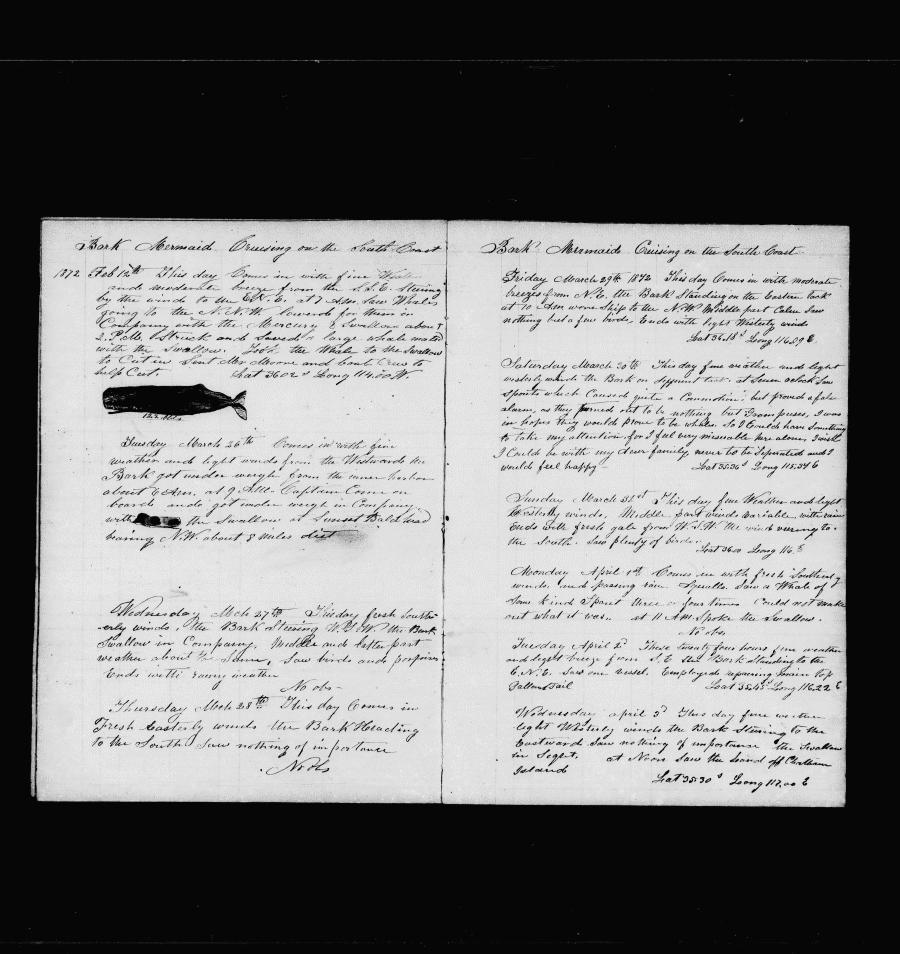 Bark Mermaid Cruising on the South Coast
1872 Feb 12th This day Comes in with fine Weather
and moderate breeze from the S.S.E. Steering
by the wind to the E.N.E. at 7 A.m. Saw Whales
going to the N.N.W. Lowered for them in
Company with the Mercury & Swallow about
2 P.M. Struck and Saved a large whale mated
with the Swallow. Took the Whale to the Swallow
to Cut in Sent Mr Moore and boats Crew to
help Cut. Lat 36 02 S Long 114.50
Tuesday March 26th Comes in with fine
weather and light winds from the Westward the
Bark got under weigh from the inner harbor
about 6 A.m. at 9 A.M. Captain Came on
board and got under weigh in Company
with the Swallow at Sunset Bald head
bearing N.W. about 8 miles dist
Wednesday Mch 27th This day fresh South
erly winds, the Bark Steering W.S.W. the Bark
Swallow in Company. Middle and latter part
weather about the Same, Saw birds and porpoises
Ends with rainy weather
No obs
Thursday Mch 28th This day Comes in
Fresh Easterly winds the Bark Heading
to the South Saw nothing of importance
No obs
Bark Mermaid Cuising on the South Coast
Friday March 29th 1872 This day Comes in with moderate
breezes from N.E. the Bark Standing on the Eastern tack
at 10 A.m wore Ship to the N.W. Middle part Calm Saw
nothing but a few birds. Ends with light Westerly winds
Lat 36.18 S Long 116.09 E
Saturday March 30th This day fine weather and light
westerly winds the Bark on different tacks. at Seven oclock Saw
Spouts which Caused quite a Commotion, but proved a false
alarm, as they turned out to be nothing but Grampuses, I was
in hopes they would prove to be whales. So I Could have Something
to take my attention for I feel very miserable here alone. I wish
I Could be with my dear family never to be Seperated and I
would feel happy Lat 35.36 S Long 115.34 E
Sunday March 31st This day fine Weather and light
Westerly winds, Middle part winds variable with rain
Ends with fresh gale from W.S.W. the wind veering to
the South. Saw plenty of birds.
Lat 36.00 Long 116. E
Monday April 1st Comes in with fresh Southerly
winds and passing rain Squalls. Saw a Whale of
Some kind Spout three or four times Could not make
out what it was. at 11 A.m. Spoke the Swallow.
No obs
Tuesday April 2d These twenty four hours fine weather
and light breeze from S.E. the Bark Standing to the
E.N.E. Saw one vessel. Employed repairing main top
Gallant Sail Lat 35.45 S Long 116.22 E
Wednesday april 3d This day fine weather
light Westerly winds the Bark Steering to the
Eastward Saw nothing of importance the Swallow
in Sight. at Noon Saw the land off Chatham
Island
Lat 35.30 S Long 117.00 E